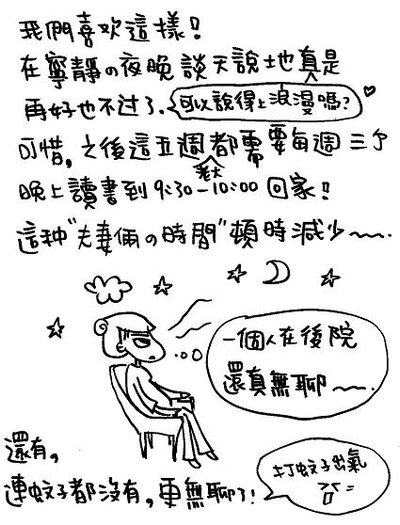 我們喜欢這樣!
在寧靜の夜晚談天說地真是
再好也不过了.可以說得上浪漫嗎?
可惜,之後這五週都需要每週三个
老大
晚上讀書到9:30-10:00回家!!
這种"夫妻倆の時間"頓時減少~~.
一個人在後院
還真無聊~~.
還有,
連蚊子都沒有,更無聊了!
打蚊子出氣